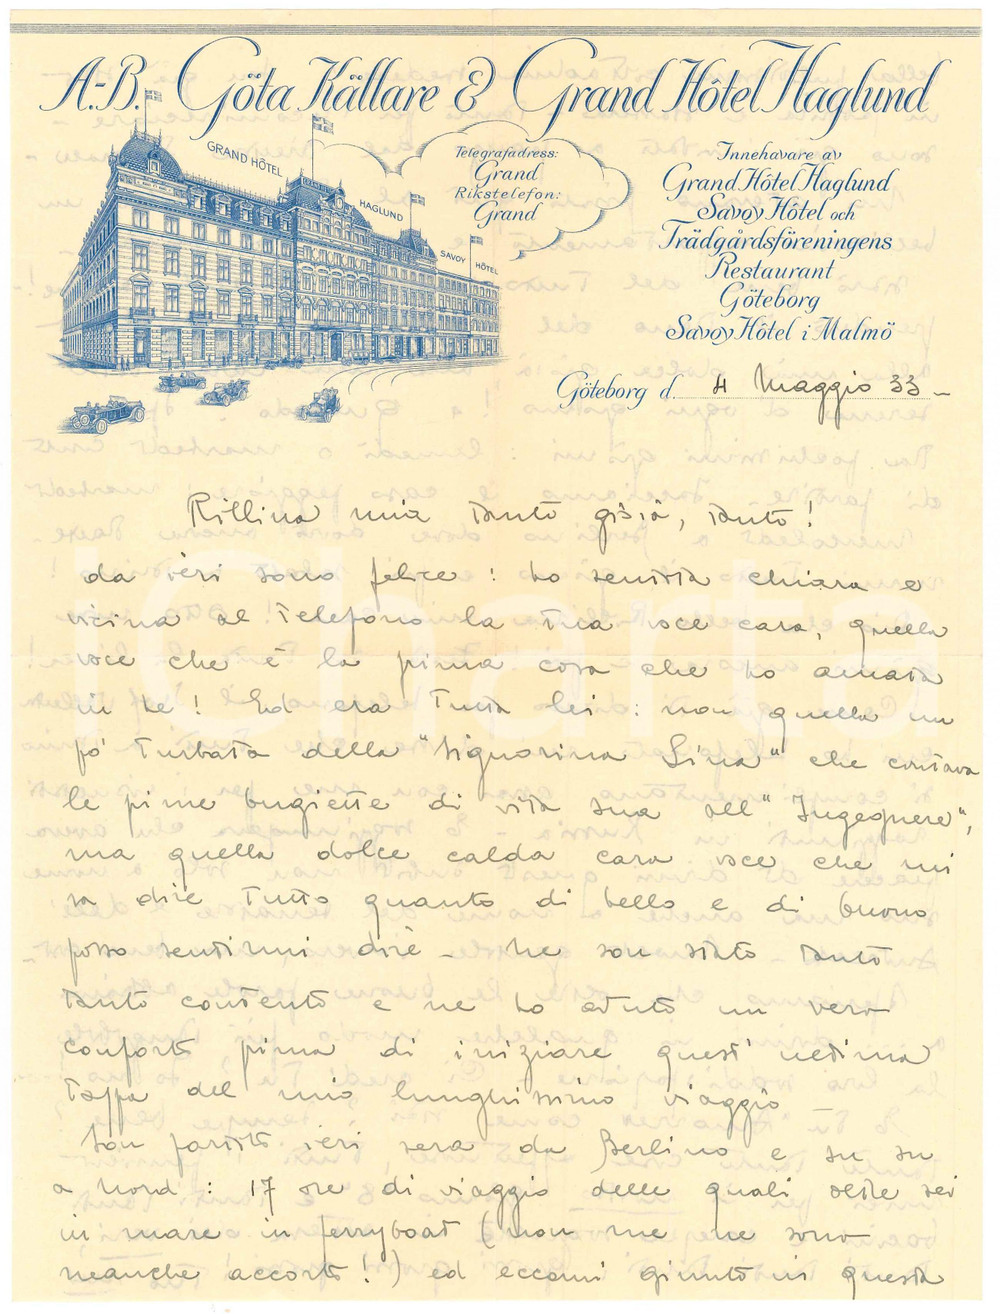 A.-B. Göta Källare & Grand Hôtel Haglund
GRAND HÔTEL
HAGLUND
SAVOY HÔTEL
Telegrafadress:
Grand
Rikstelefon:
Grand
Innehavare av
Grand Hôtel Haglund
Savoy Hôtel och
Trädgårdsföreningens
Restaurant
Göteborg
Savoy Hôtel i Malmö
Göteborg d. 4 Maggio 33 –
Rillina mia tanto gioia, tanto!
da ieri sono felice: ho sentita chiara e
vicina al telefono la tua voce cara, quella
voce che è la prima cosa che ho amata
in te! Ed era tutta lei: non quella un
pò turbata della "Signorina Lina" che contava
le prime bugiette di vita sua all' "Ingegnere",
ma quella dolce calda cara voce che mi
sa dire tutto quanto di bello e di buono
posso sentirmi dire – Ne son stato tanto
tanto contento e ne ho avuto un vero
conforto prima di iniziare quest'ultima
tappa del mio lunghissimo viaggio –
Son partito ieri sera da Berlino e su su
a Nord: 17 ore di viaggio delle quali oltre sei
in mare in ferryboat (non me ne sono
neanche accorto!) ed eccomi giunto in questa
iCharta